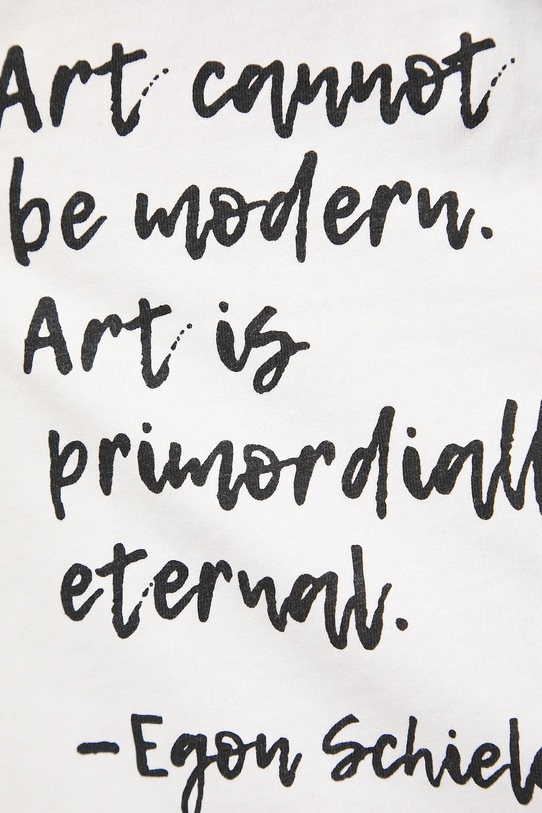 Art cannot
be modern.
Art is
primordiall
eternal.
-Egon Schiele